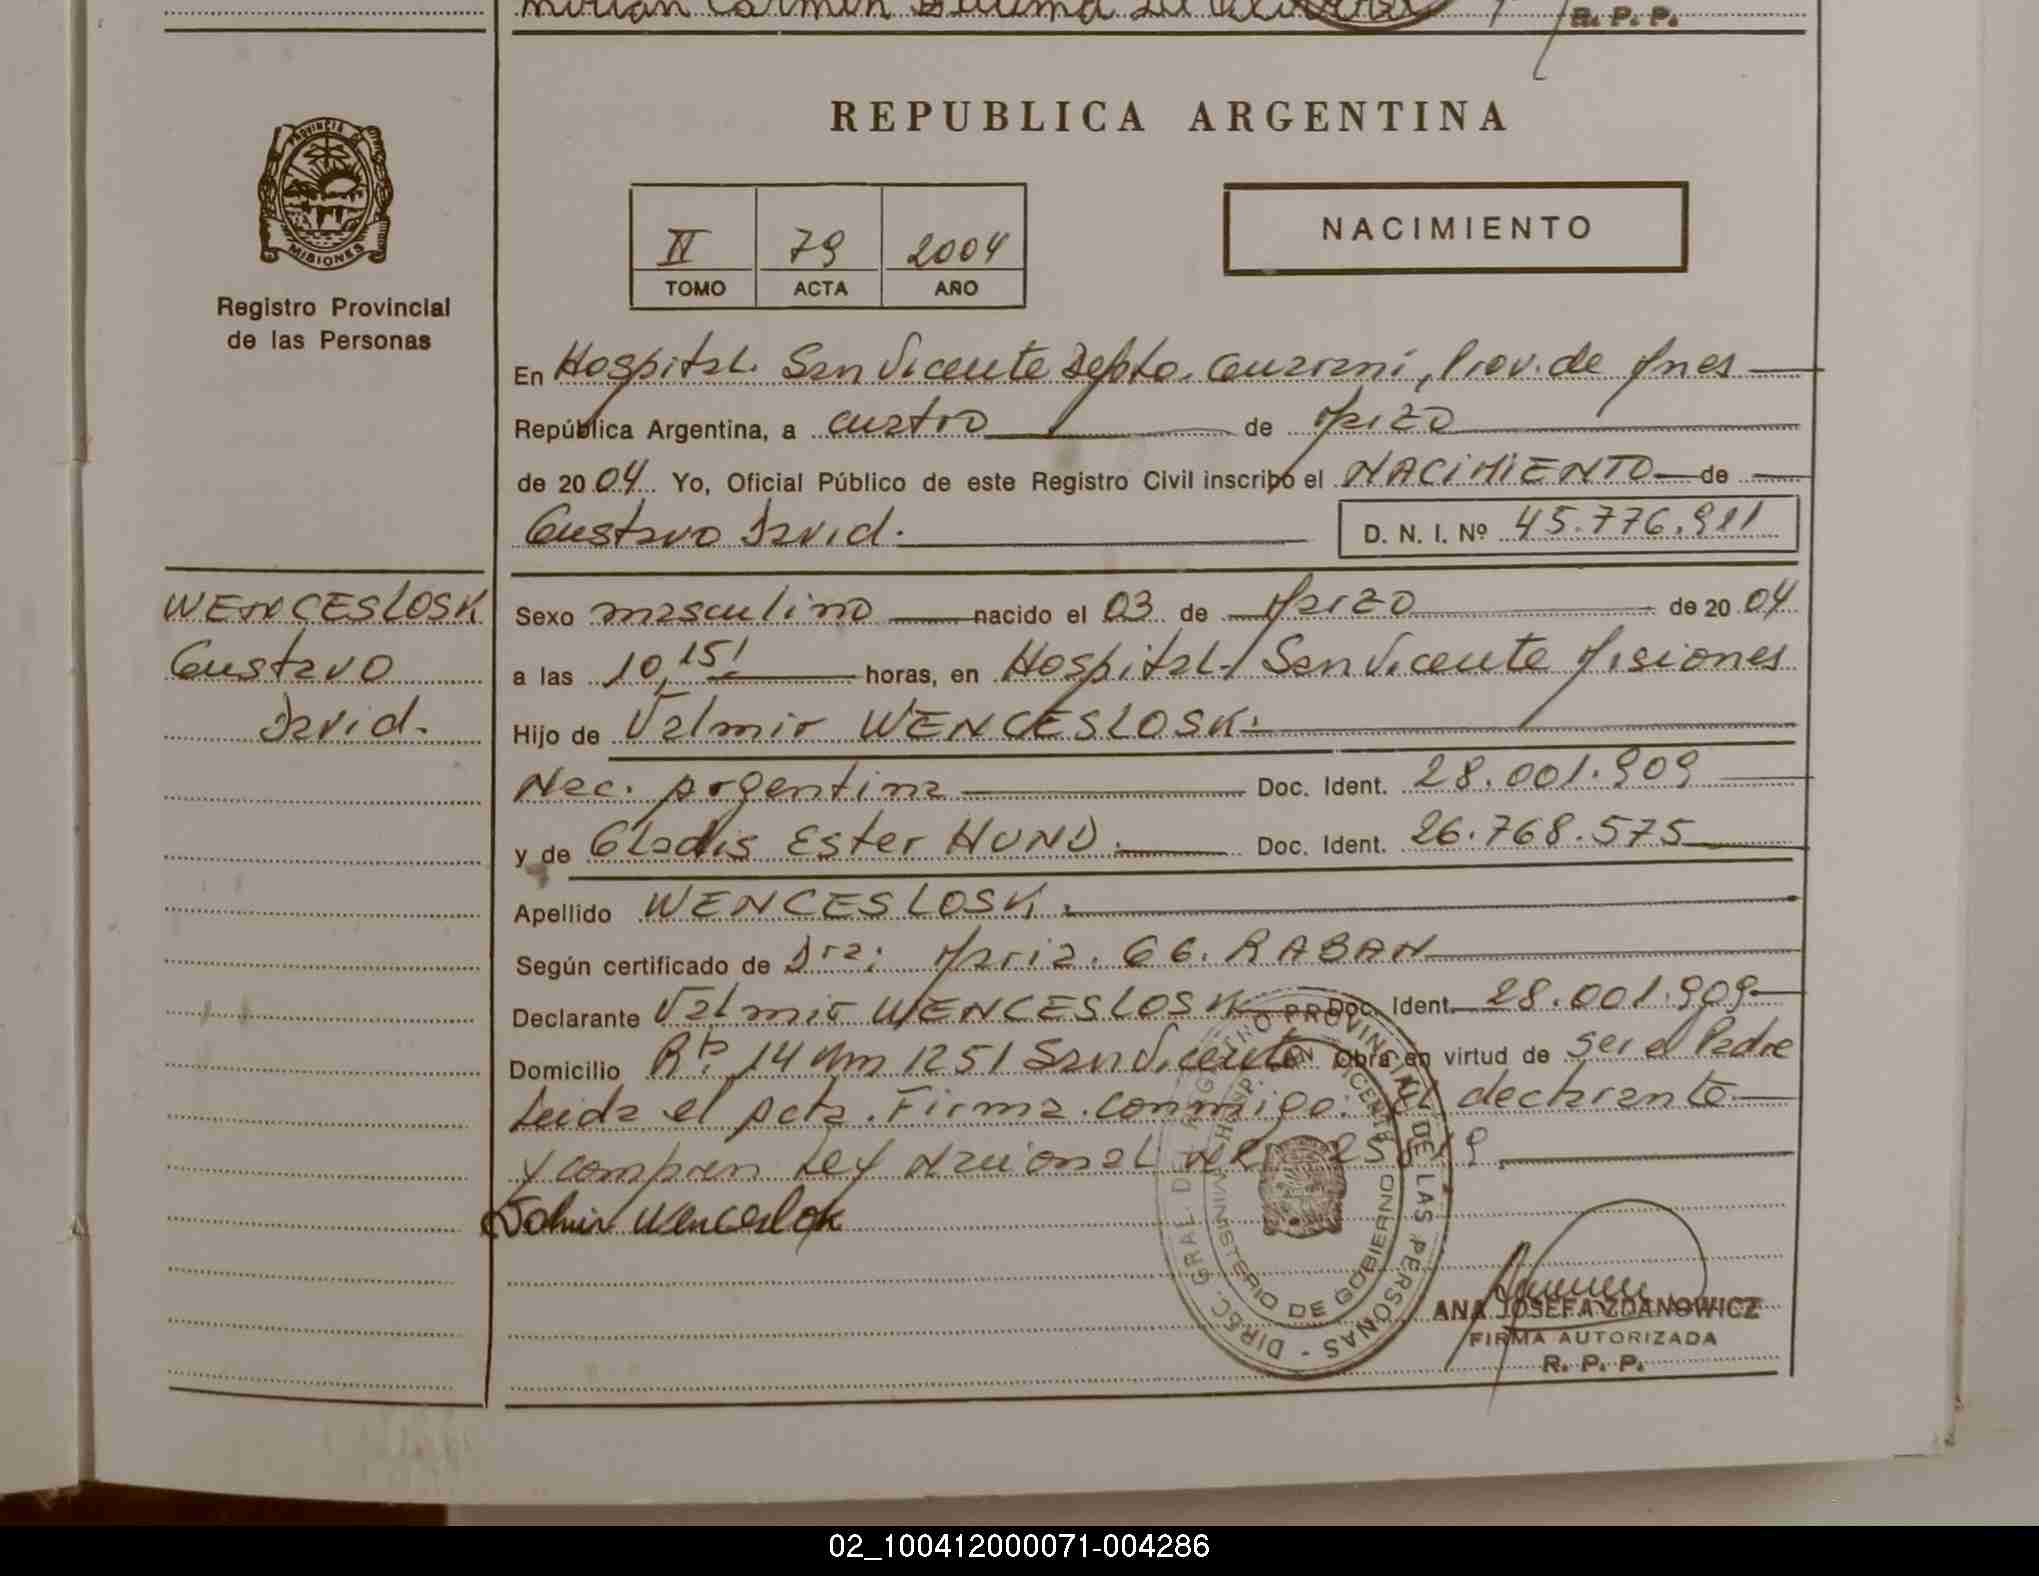 Mirian Carmen
R. P. P.
PROVINCIA DE
MISIONES
Registro Provincial
de las Personas
REPUBLICA ARGENTINA
II 79 2004
TOMO ACTA AÑO
NACIMIENTO
En Hospital. San Vicente Depto. Guaraní, Prov. de Mnes
República Argentina, a cuatro de Marzo
de 2004 Yo, Oficial Público de este Registro Civil inscribo el NACIMIENTO de
Gustavo David.
D. N. I. Nº 45.776.911
WENCESLOSK
Gustavo
David.
Sexo masculino nacido el 03 de Marzo de 2004
a las 10,15 horas, en Hospital. San Vicente Misiones
Hijo de Valmir WENCESLOSK.
Nac. Argentina Doc. Ident. 28.001.909
y de Gladis Ester HUND. Doc. Ident. 26.768.575
Apellido WENCESLOSK.
Según certificado de Dra: Maria. GG. RABAN
Declarante Valmir WENCESLOSK Doc. Ident. 28.001.909
Domicilio Rta. 14 Km 1251 San Vicente Obra en virtud de ser el Padre
Leida el acta. Firma. conmigo: el declarante
y compren Ley Nacional
Valmir Wenceslosk
DIREC. GRAL. DE REGISTRO PROVINCIAL DE LAS PERSONAS -
HOSP. SAN VICENTE
MINISTERIO DE GOBIERNO
ANA JOSEFA ZDANOWICZ
FIRMA AUTORIZADA
R. P. P.
02_100412000071-004286